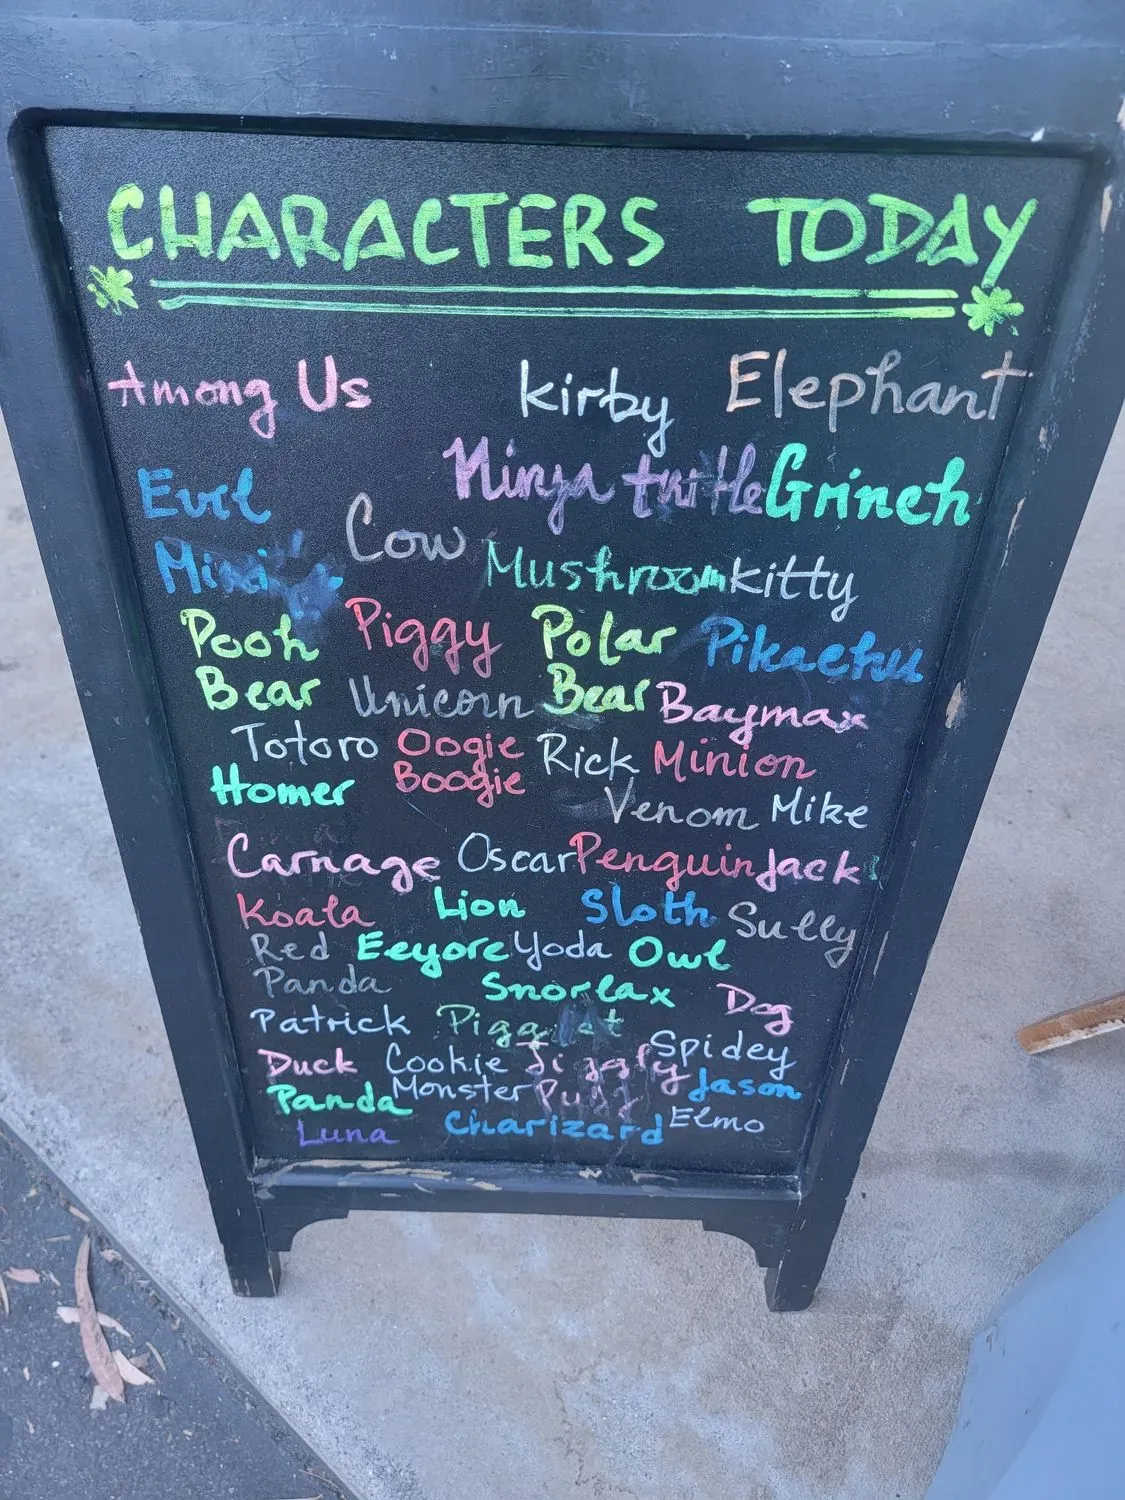 CHARACTERS TODAY
Among Us kirby Elephant
Evil Ninja turtle Grinch
Cow
Mushroom kitty
Pooh Piggy Polar Pikachu
Bear Unicorn Bear Baymax
Totoro Oogie Rick Minion
Homer Boogie Venom Mike
Carnage Oscar Penguin Jack
Koala Lion Sloth Sully
Red Eeyore Yoda Owl
Panda Snorlax Dog
Patrick Spidey
Duck Cookie Jiggly
Panda Monster Puff Jason
Luna Charizard Elmo